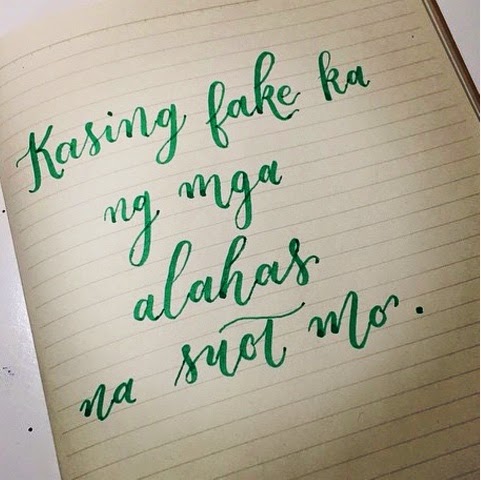 Kasing fake ka
ng mga
alahas
na suot mo.